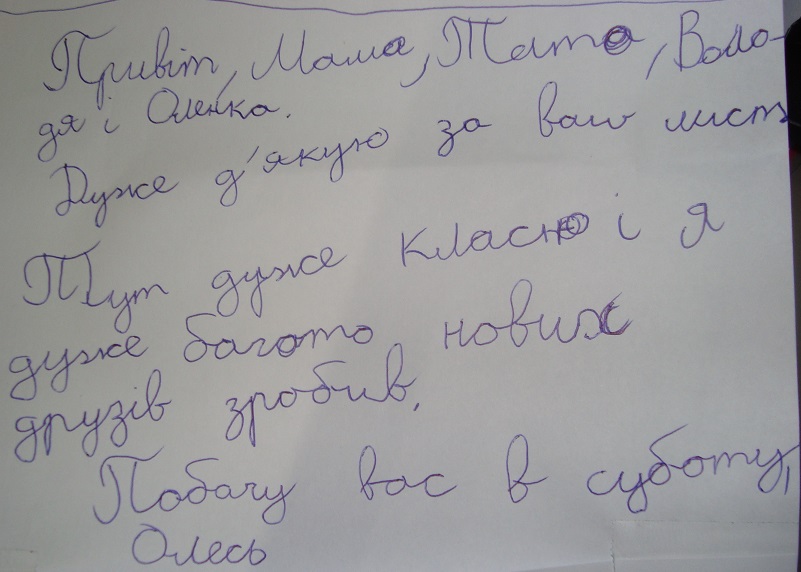 Привіт, Мама, Тато, Воло-
дя і Оленка.
Дуже д'якую за ваш лист
Тут дуже класно і я
дуже багато нових
друзів зробив.
Побачу вас в суботу,
Олесь